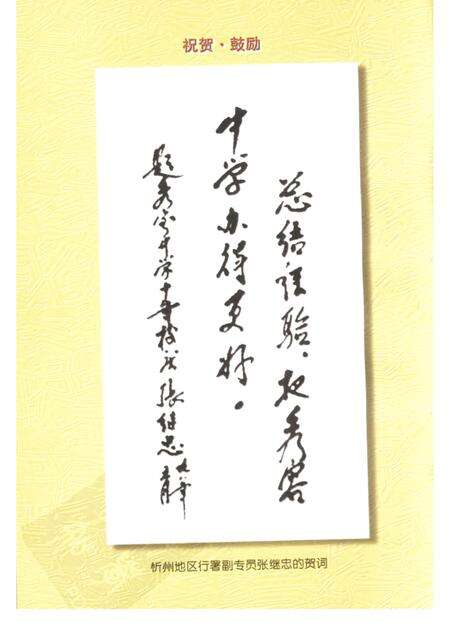 祝贺·鼓励
总结经验,把秀容
中学办得更好。
题秀容中学十年校庆 张继忠
忻州地区行署副专员张继忠的贺词